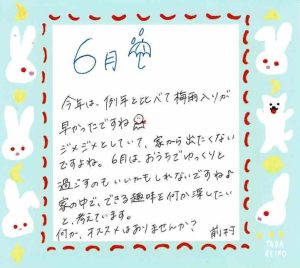 6月
今年は、例年と比べて梅雨入りが
早かったですね
ジメジメとしていて、家から出たくない
ですよね。6月は、おうちでゆっくりと
過ごすのもいいかもしれないですねよ
家の中で、できる趣味を何か探したい
と、考えています。
何か、オススメはありませんか？ 前村
TADA
REIKO